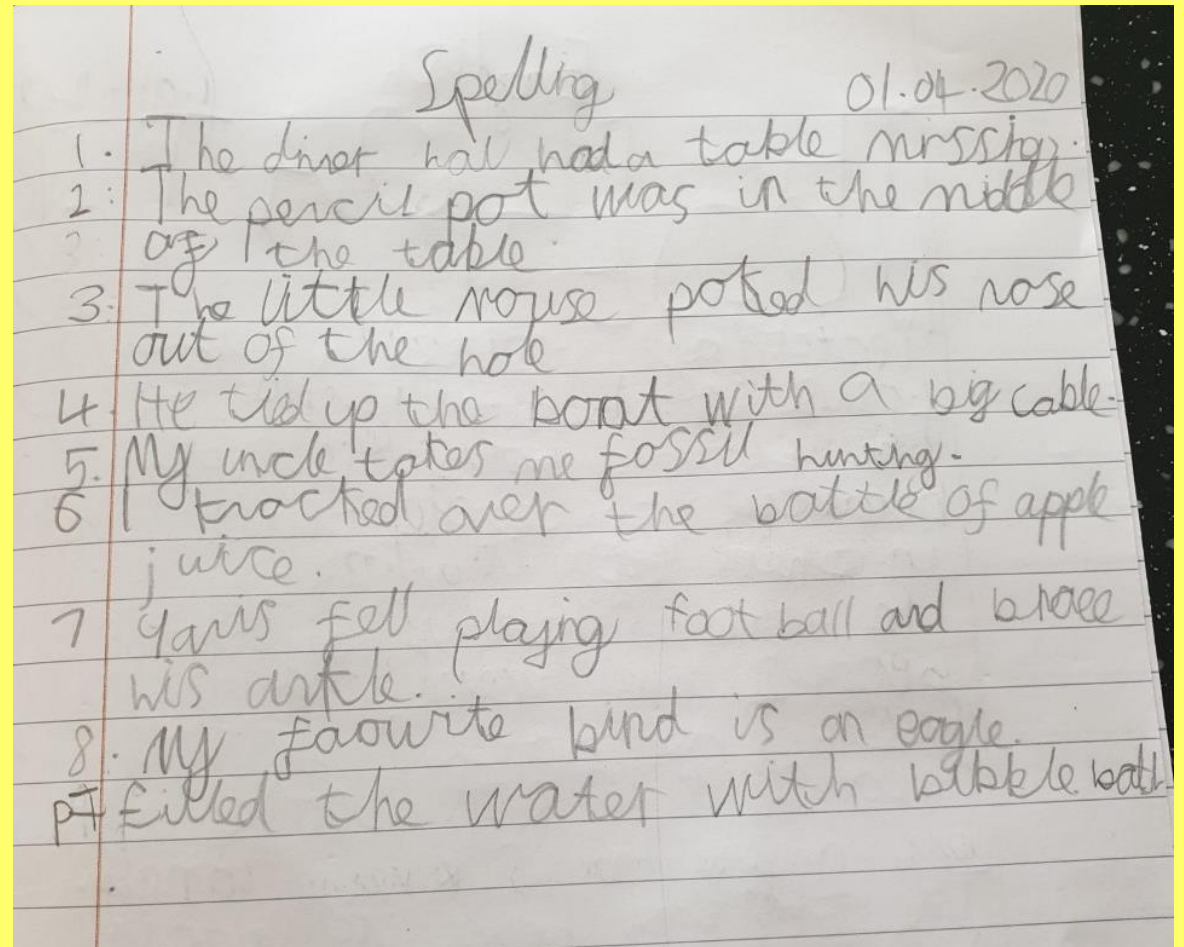 Spelling 01.04.2020
1. The diner hall had a table missing.
2. The pencil pot was in the middle
of the table.
3. The little mouse poked his nose
out of the hole
4. He tied up the boat with a big cable.
5. My uncle takes me fossil hunting.
6 I knocked over the bottle of apple
juice.
7 Yanis fell playing football and broke
his ankle.
8. My faourite bird is an eagle.
9 I filled the water with bubble bath